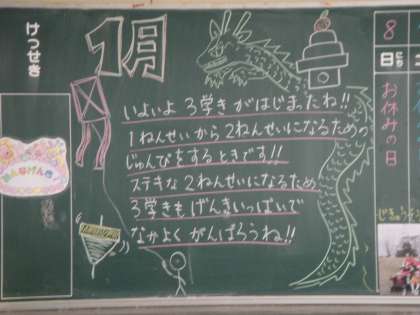 けっせき
みんなげんき
1月
いよいよ 3学きがはじまったね!!
1ねんせいから2ねんせいになるための
じゅんびをするときです!!
ステキな2ねんせいになるため
3学きもげんきいっぱいで
なかよくがんばろうね!!
8
日
お休みの日